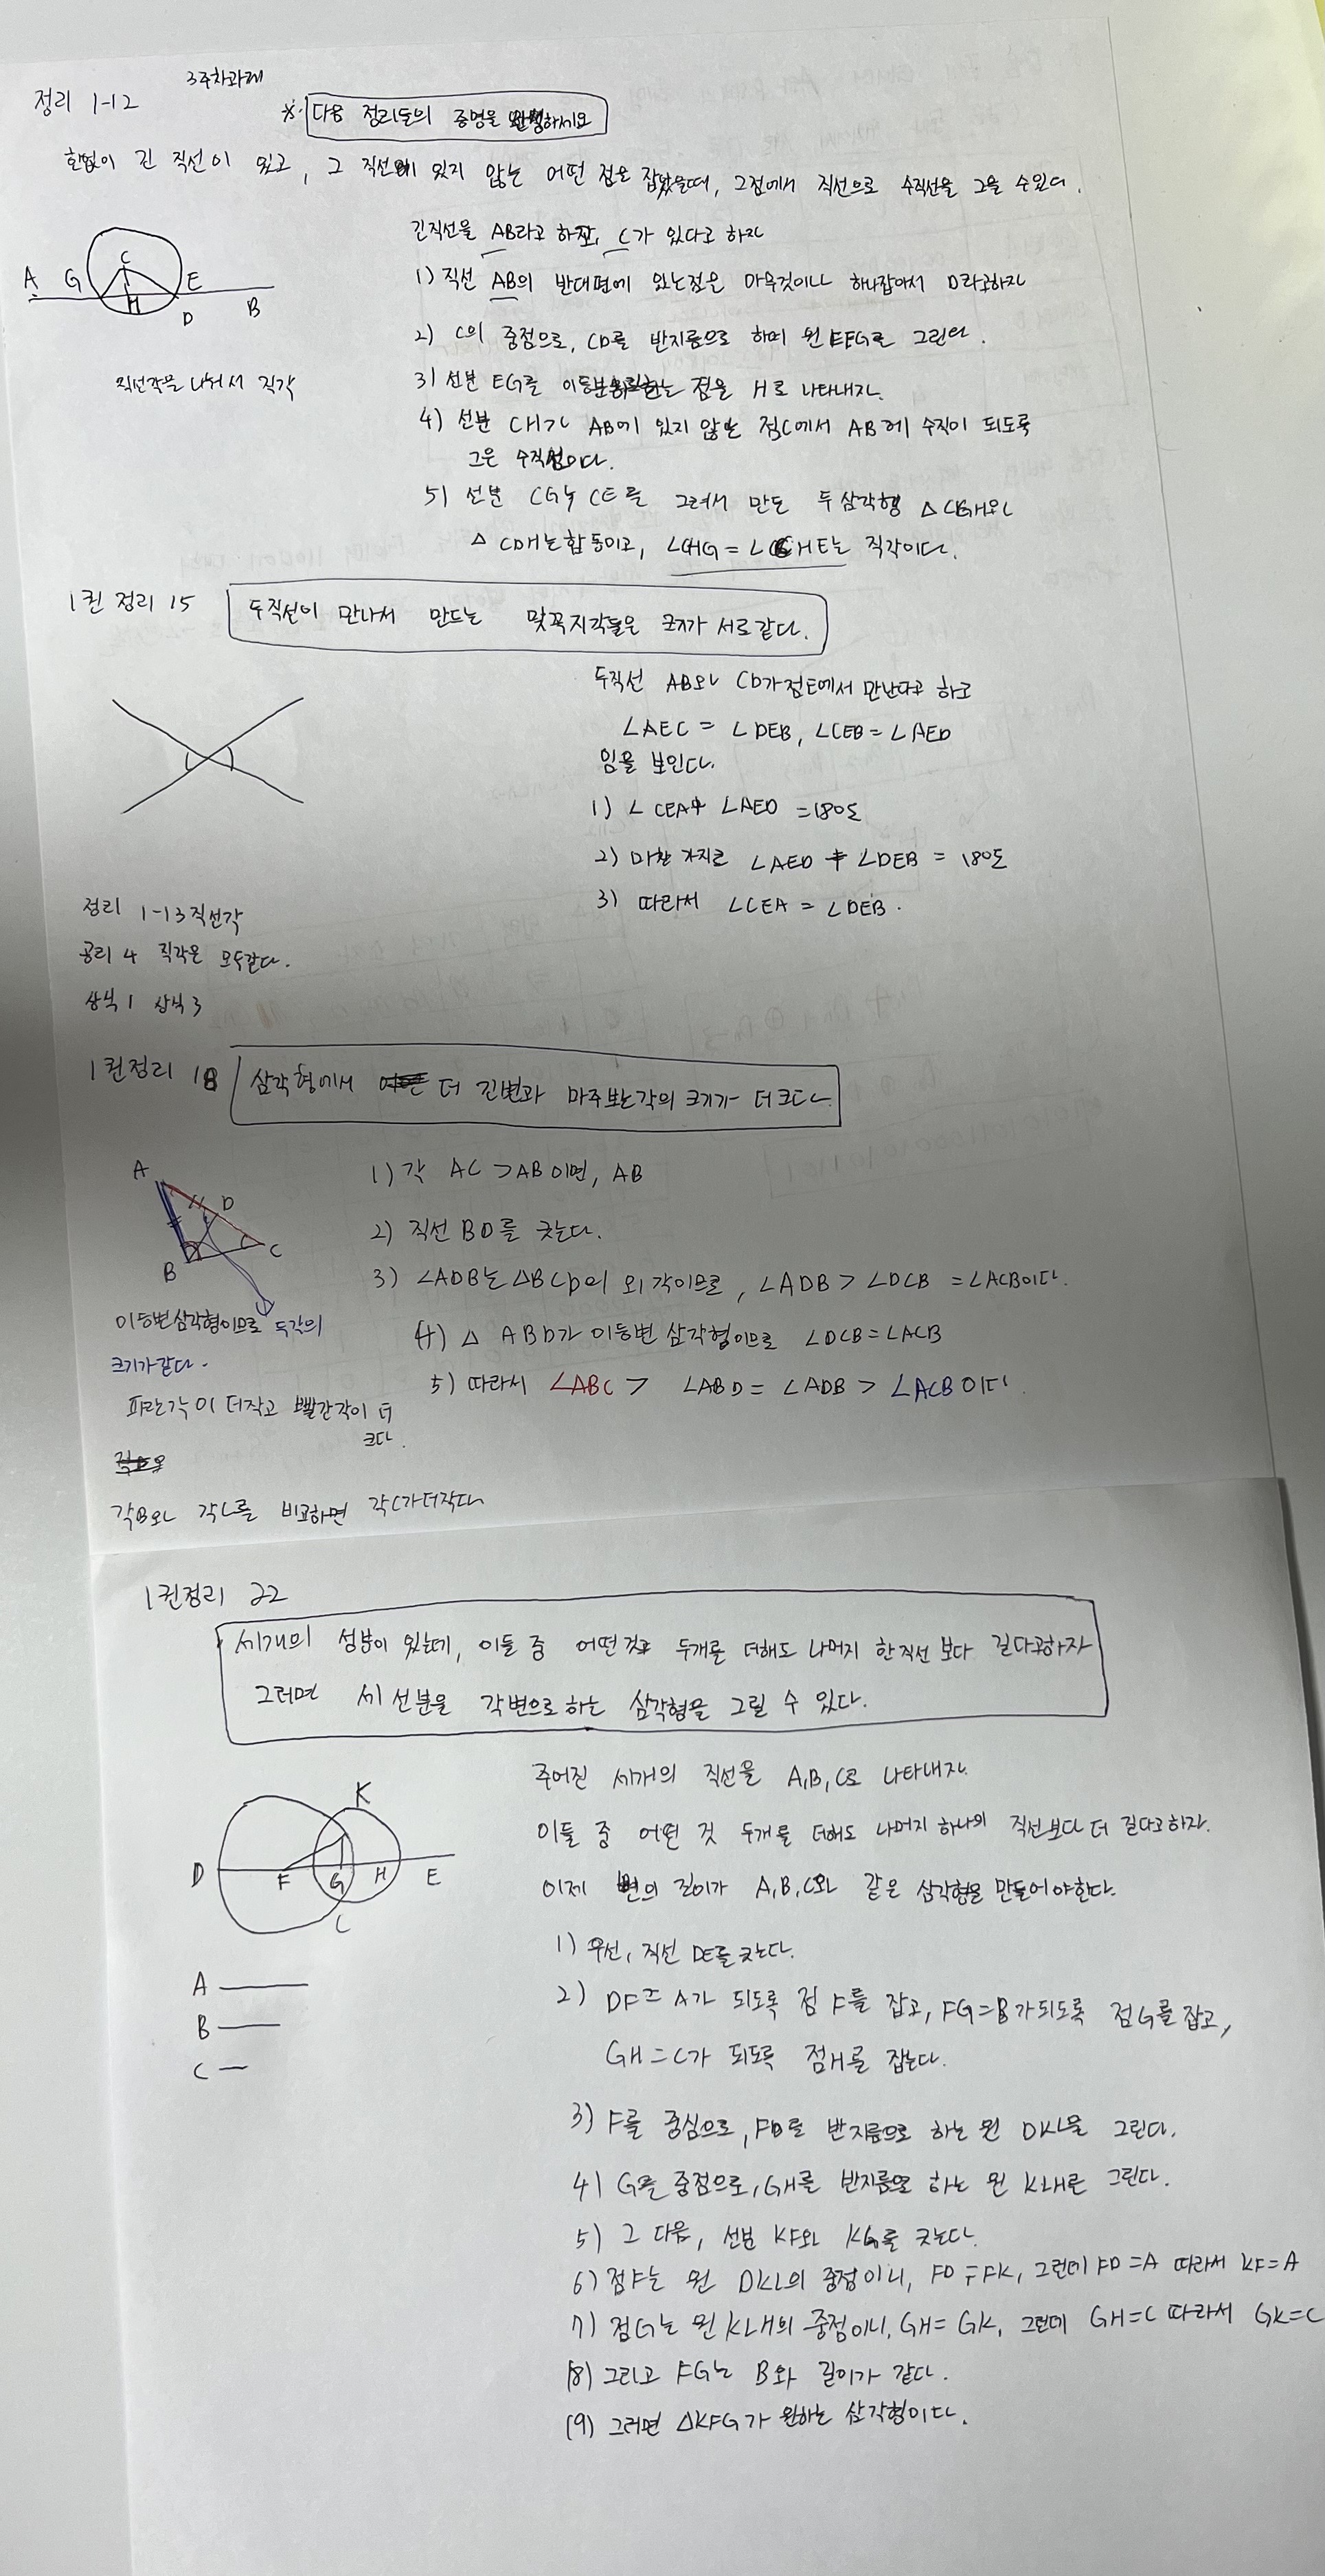 3주차과제
정리 1-12
※ 다음 정리들의 증명을 완성하세요
한없이 긴 직선이 있고, 그 직선에 있지 않는 어떤 점을 잡았을때, 그점에서 직선으로 수직선을 그을 수 있다.
긴직선을 AB라고 하고, C가 있다고 하자
1) 직선 AB의 반대편에 있는점을 아무것이나 하나잡아서 D라고하자
2) C의 중점으로, CD를 반지름으로 하여 원 EFG를 그린다.
3) 선분 EG를 이등분하는 점을 H로 나타내자.
4) 선분 CH가 AB에 있지 않는 점C에서 AB에 수직이 되도록
그은 수직선이다.
5) 선분 CG와 CE를 그려서 만든 두 삼각형 △CGH와
△CDH는 합동이고, ∠CHG = ∠CHE는 직각이다.
A G C E H D B
직선각을 나눠서 직각
1권 정리 15
두직선이 만나서 만드는 맞꼭지각들은 크기가 서로같다.
두직선 AB와 CD가 점E에서 만난다고 하고
∠AEC = ∠DEB, ∠CEB = ∠AED
임을 보인다.
1) ∠CEA+ ∠AED = 180도
2) 마찬가지로 ∠AED + ∠DEB = 180도
3) 따라서 ∠CEA = ∠DEB.
정리 1-13 직선각
공리 4 직각은 모두같다.
상식1 상식3
1권정리 18
삼각형에서 더 긴변과 마주보는각의 크기가 더 크다
1) 각 AC >AB이면, AB
2) 직선 BD를 긋는다.
3) ∠ADB는 △BCD의 외각이므로, ∠ADB > ∠DCB = ∠ACB이다.
(4) △ ABD가 이등변 삼각형이므로 ∠DCB = ∠ACB
5) 따라서 ∠ABC > ∠ABD = ∠ADB > ∠ACB이다.
A D B C
이등변삼각형이므로 두각의
크기가같다.
파란각이 더작고 빨간각이 더
크다.
각B와 각C를 비교하면 각C가더작다
1권정리 22
세개의 선분이 있는데, 이들 중 어떤것 두개를 더해도 나머지 한직선 보다 길다고하자
그러면 세 선분을 각변으로 하는 삼각형을 그릴 수 있다.
주어진 세개의 직선을 A,B,C로 나타내자.
이들 중 어떤 것 두개를 더해도 나머지 하나의 직선보다 더 길다고 하자.
이제 변의 길이가 A,B,C와 같은 삼각형을 만들어야한다.
K
D F G H E
L
A
B
C
1) 우선, 직선 DE를 긋는다.
2) DF = A가 되도록 점 F를 잡고, FG=B가되도록 점G를 잡고,
GH=C가 되도록 점H를 잡는다.
3) F를 중심으로, FD를 반지름으로 하는 원 DKL을 그린다.
4) G를 중점으로, GH를 반지름으로 하는 원 KLH를 그린다.
5) 그 다음, 선분 KF와 KG를 긋는다.
6) 점F는 원 DKL의 중점이니, FD=FK, 그런데 FD=A 따라서 KF=A
7) 점G는 원 KLH의 중점이니, GH= GK, 그런데 GH=C 따라서 GK=C
(8) 그리고 FG는 B와 길이가 같다.
(9) 그러면 △KFG가 원하는 삼각형이다.